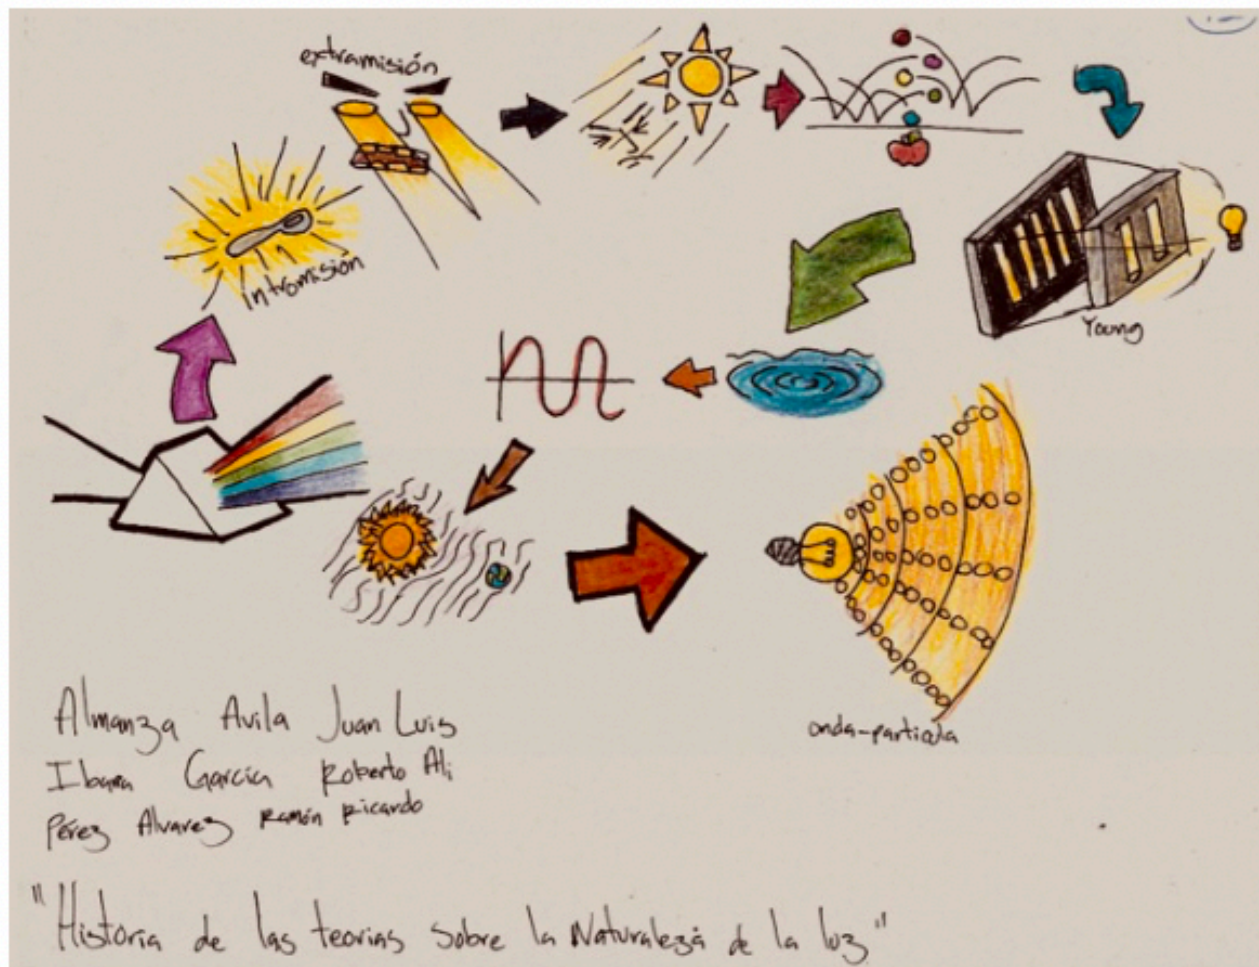 extramisión
intromisión
Young
onda-particula
Almanza Avila Juan Luis
Ibarra García Roberto Ali
Pérez Alvarez Ramón Ricardo
"Historia de las teorias sobre la Naturaleza de la luz"